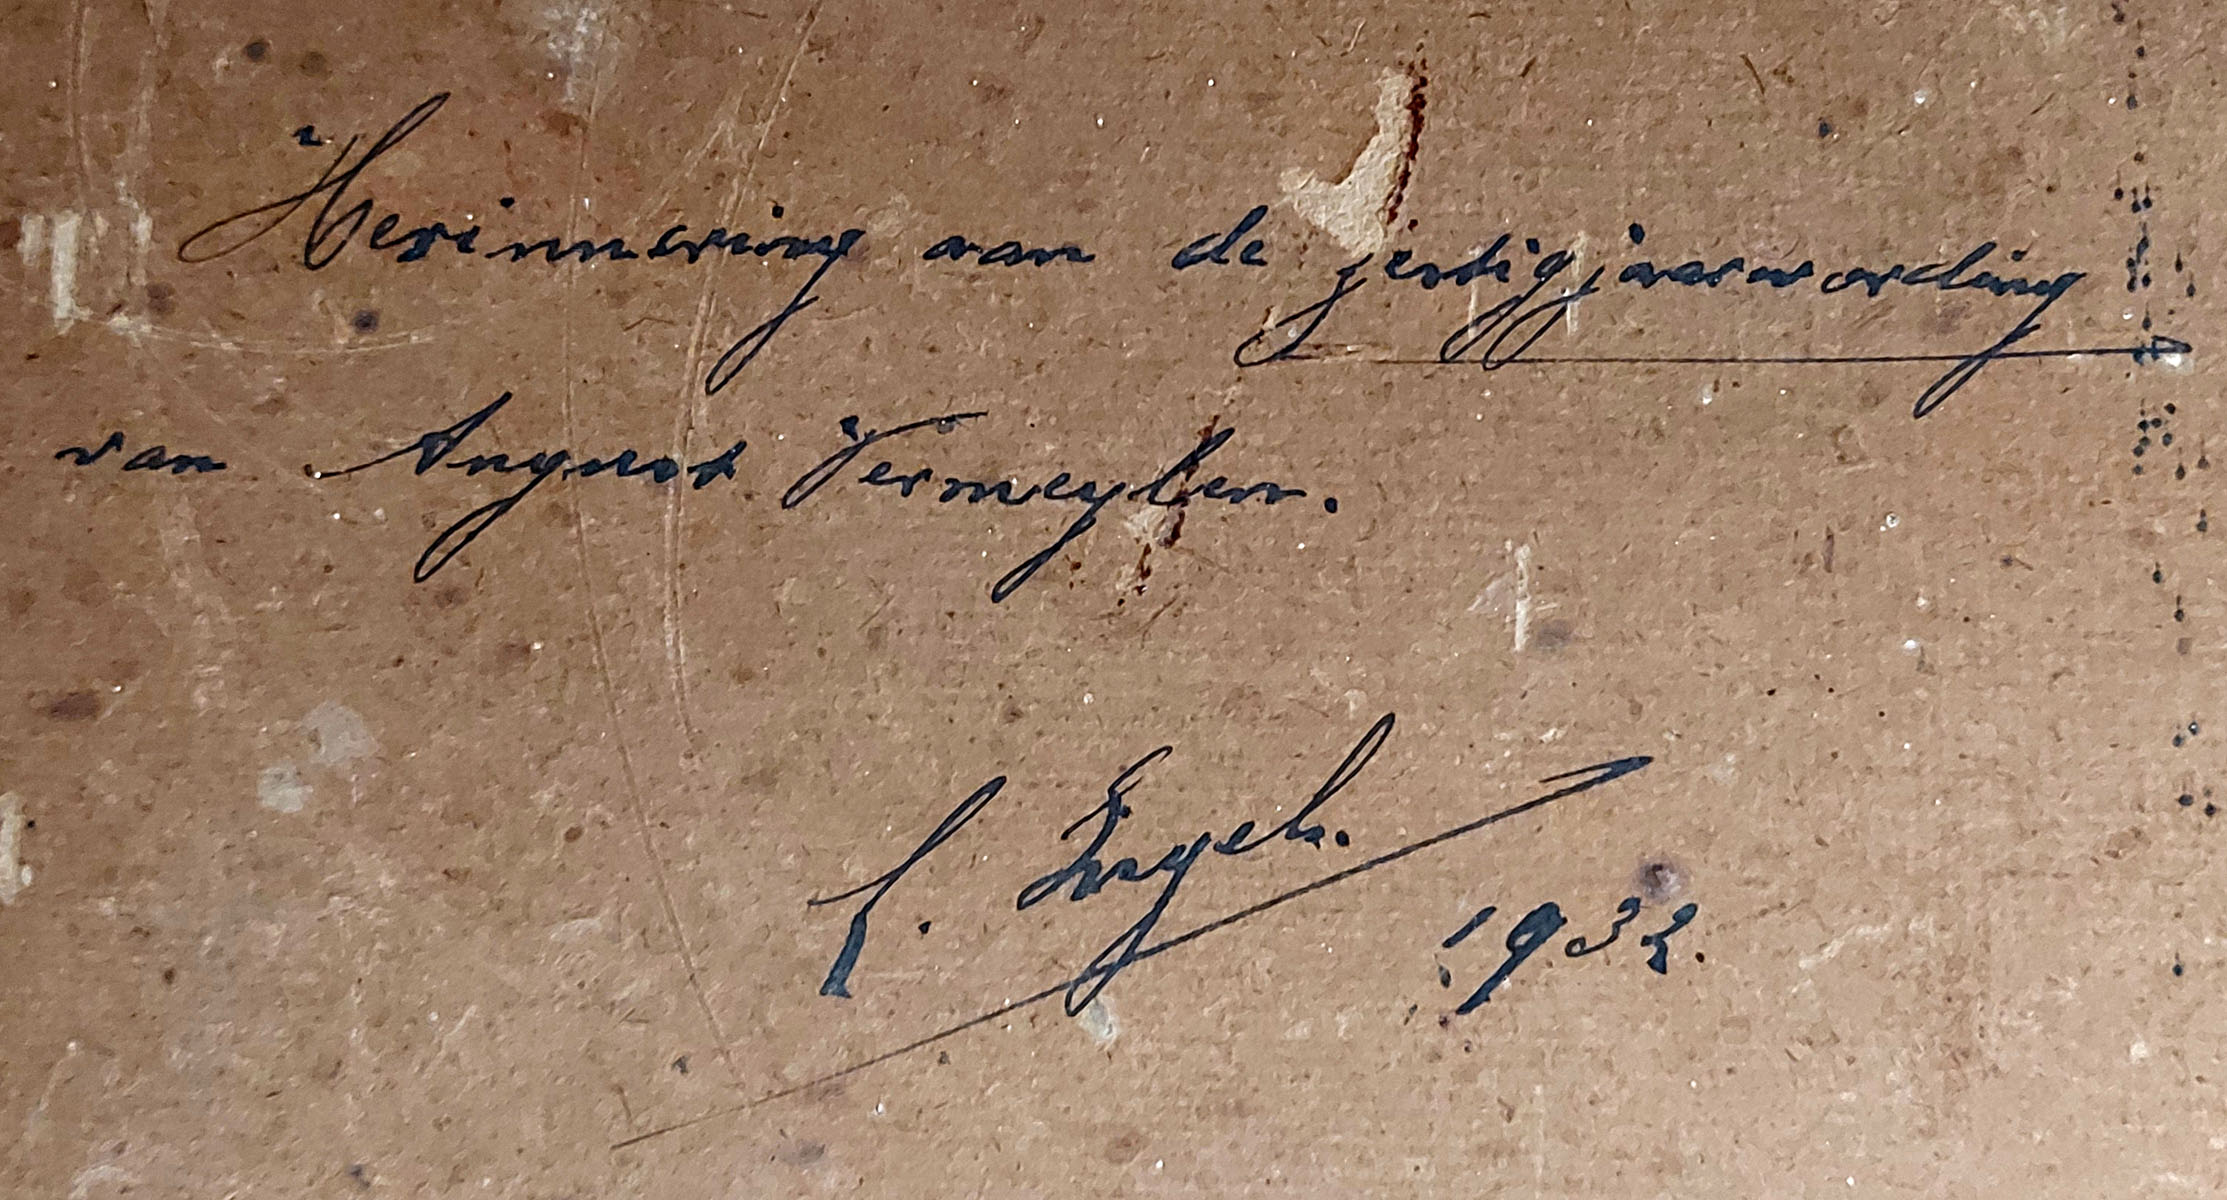 Herinnering aan de zestigjaarwording
van August Vermeylen.
1932.